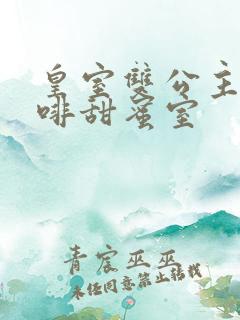 皇室雙公主
啡甜蜜室
青宸巫巫
未任同意禁止转载